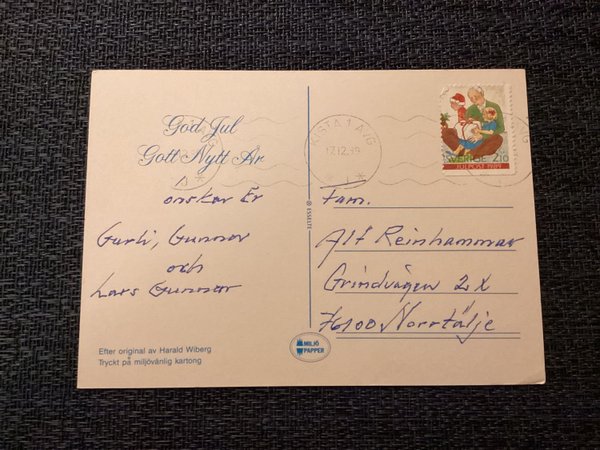 God Jul
Gott Nytt År
önskar Er
Gurli, Gunnar
och
Lars Gunnar
Efter original av Harald Wiberg
Tryckt på miljövänlig kartong
ESSELTE
MILJÖ
PAPPER
KISTA 1 AVG
17.12.89
SVERIGE 210
JULPOST 1989
Fam.
Alf Reinhammar
Grindvägen 2X
76100 Norrtälje